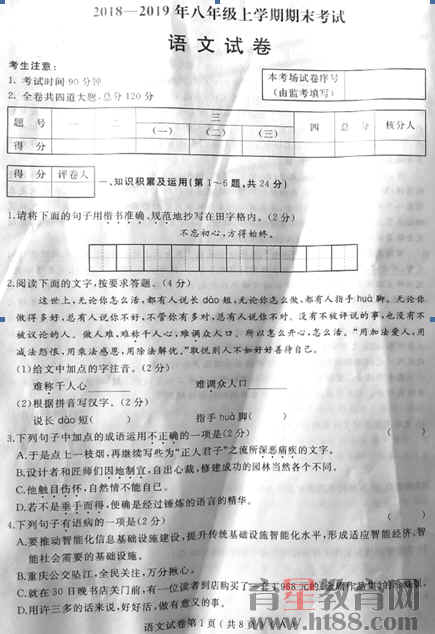 2018—2019年八年级上学期期末考试
语文试卷
考生注意:
1. 考试时间90分钟
2. 全卷共四道大题,总分120分
本考场试卷序号
(由监考填写)
题 号 一 二 三 四 总 分 核分人
(一) (二) (三)
得 分
得 分 评卷人
一、知识积累及运用(第1~6题,共24分)
1.请将下面的句子用楷书准确、规范地抄写在田字格内。(2分)
不忘初心,方得始终。
2.阅读下面的文字,按要求答题。(4分)
这世上,无论你怎么活,都有人说长dào短,无论你怎么做,都有人指手huà脚。无论你
做得多好,总有人说你不好,不管你有多对,总有人说你不对。没有不被评说的事,也没有不
被议论的人。做人难,难称千人心,难调众人口。所以怎么开心,怎么活。“用加法爱人,用
减法怨恨,用乘法感恩,用除法解忧。”取悦别人不如好好善待自己。
(1)给文中加点的字注音。(2分)
难称千人心 难调众人口
(2)根据拼音写汉字。(2分)
说长dào短( ) 指手huà脚( )
3.下列句子中加点的成语运用不正确的一项是(2分) ( )
A.于是点上一枝烟,再继续写些为“正人君子”之流所深恶痛疾的文字。
B.设计者和匠师们因地制宜,自出心裁,修建成功的园林当然各个不同。
C.他触目伤怀,自然情不能自已。
D.若不是垂手而得,便确是经过锤炼的语言的精华。
4.下列句子有语病的一项是(2分) ( )
A.要推动智能化信息基础设施建设,提升传统基础设施智能化水平,形成适应智能经济、智
能社会需要的基础设施。
B.重庆公交坠江,全民关注,万分揪心。
C.就在30日晚书店关门前,有一位读者到店购买了一
D.用许三多的话来说,好好活,做有意义的事。
语文试卷第1页(共8页)
育星教育网
www.ht88.com